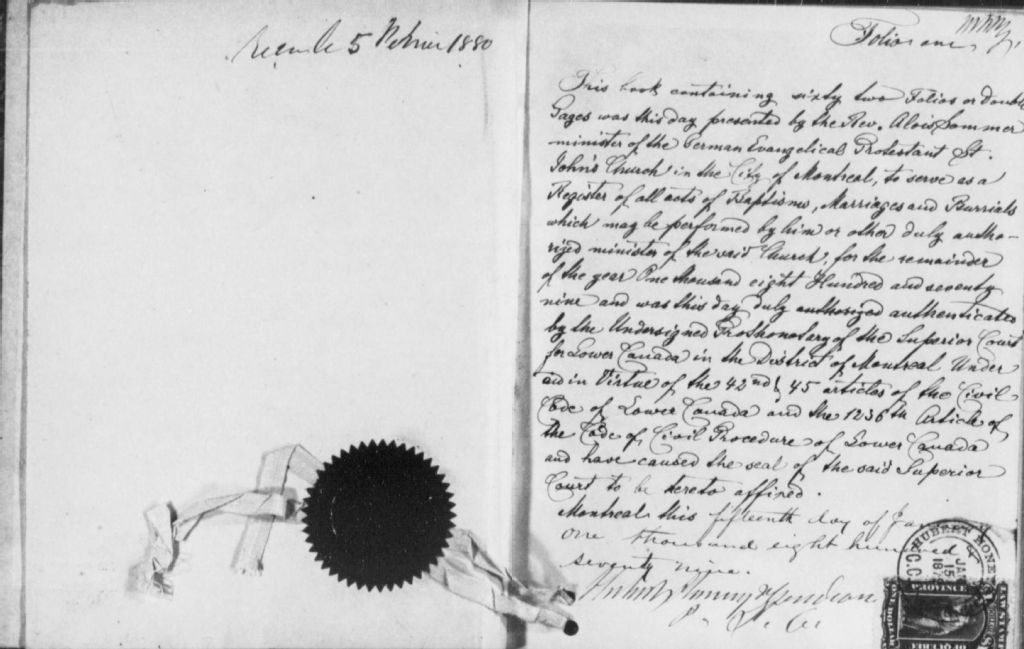 Recu le 5 Février 1880
Folios one
This book containing sixty two Folios or double
Pages was this day presented by the Rev. Alois Sommer
minister of the German Evangelical Protestant St.
John's Church in the City of Montreal, to serve as a
Register of all acts of Baptisms, Marriages and Burrials
which may be performed by him or other duly autho-
rized minister of the said Church, for the remainder
of the year One thousand eight Hundred and seventy
nine and was this day duly authorized authenticated
by the Undersigned Prothonotary of the Superior Court
for Lower Canada in the District of Montreal Under
and in Virtue of the 42nd & 45 articles of the Civil
Code of Lower Canada and the 1236th Article of
the Code of Civil Procedure of Lower Canada
and have caused the seal of the said Superior
Court to be hereto affixed.
Montreal this fifteenth day of Jan
One thousand eight hundred
seventy nine.
Hubert Honey Gendron
P. S. C.
HUBERT HONEY
JAN
15
187
C.C.
PROVINCE
OF QUEBEC
LAW STAMP